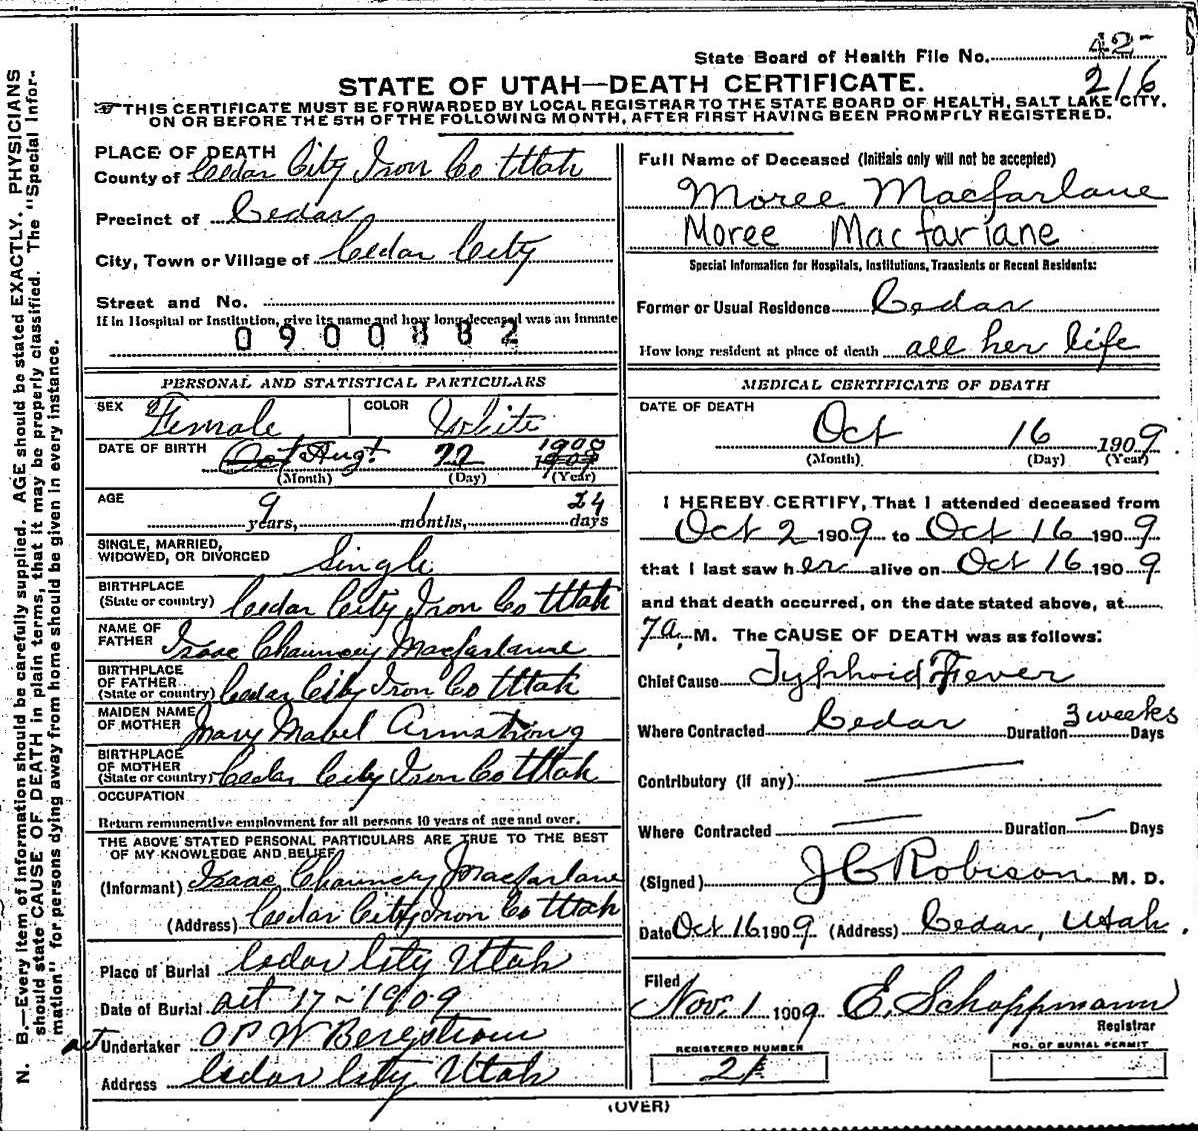 State Board of Health File No. 42-
216
STATE OF UTAH—DEATH CERTIFICATE.
THIS CERTIFICATE MUST BE FORWARDED BY LOCAL REGISTRAR TO THE STATE BOARD OF HEALTH, SALT LAKE CITY,
ON OR BEFORE THE 5TH OF THE FOLLOWING MONTH, AFTER FIRST HAVING BEEN PROMPTLY REGISTERED.
PLACE OF DEATH
County of Cedar City Iron Co Utah
Precinct of Cedar
City, Town or Village of Cedar City
Street and No.
If in Hospital or Institution, give its name and how long deceased was an inmate
0900882
PERSONAL AND STATISTICAL PARTICULARS
SEX Female COLOR White
DATE OF BIRTH Oct Aug! 22 1900
(Month) (Day) (Year)
AGE 9 years, 1 months, 24 days
SINGLE, MARRIED,
WIDOWED, OR DIVORCED Single
BIRTHPLACE
(State or country) Cedar City Iron Co Utah
NAME OF
FATHER Isaac Chauncey Macfarlane
BIRTHPLACE
OF FATHER
(State or country) Cedar City Iron Co Utah
MAIDEN NAME
OF MOTHER Mary Mabel Armstrong
BIRTHPLACE
OF MOTHER
(State or country) Cedar City Iron Co Utah
OCCUPATION
Return remunerative employment for all persons 10 years of age and over.
THE ABOVE STATED PERSONAL PARTICULARS ARE TRUE TO THE BEST
OF MY KNOWLEDGE AND BELIEF
(Informant) Isaac Chauncey Macfarlane
(Address) Cedar City Iron Co Utah
Place of Burial Cedar City Utah
Date of Burial Oct 17 - 1909
Undertaker O P W Bergstrom
Address Cedar City Utah
Full Name of Deceased (Initials only will not be accepted)
Moree Macfarlane
Moree Macfarlane
Special Information for Hospitals, Institutions, Transients or Recent Residents:
Former or Usual Residence Cedar
How long resident at place of death all her life
MEDICAL CERTIFICATE OF DEATH
DATE OF DEATH
Oct 16 1909
(Month) (Day) (Year)
I HEREBY CERTIFY, That I attended deceased from
Oct 2 1909 to Oct 16 1909
that I last saw her alive on Oct 16 1909
and that death occurred, on the date stated above, at
7a. M. The CAUSE OF DEATH was as follows:
Chief Cause Typhoid Fever
Where Contracted Cedar Duration 3 weeks Days
Contributory (if any)
Where Contracted Duration Days
(Signed) J C Robison M. D.
Date Oct 16 1909 (Address) Cedar, Utah.
Filed
Nov. 1 1909 E. Schoppmann
Registrar
REGISTERED NUMBER
NO. OF BURIAL PERMIT
(OVER)
N. B.—Every item of information should be carefully supplied. AGE should be stated EXACTLY. PHYSICIANS
should state CAUSE OF DEATH in plain terms, that it may be properly classified. The "Special Infor-
mation" for persons dying away from home should be given in every instance.